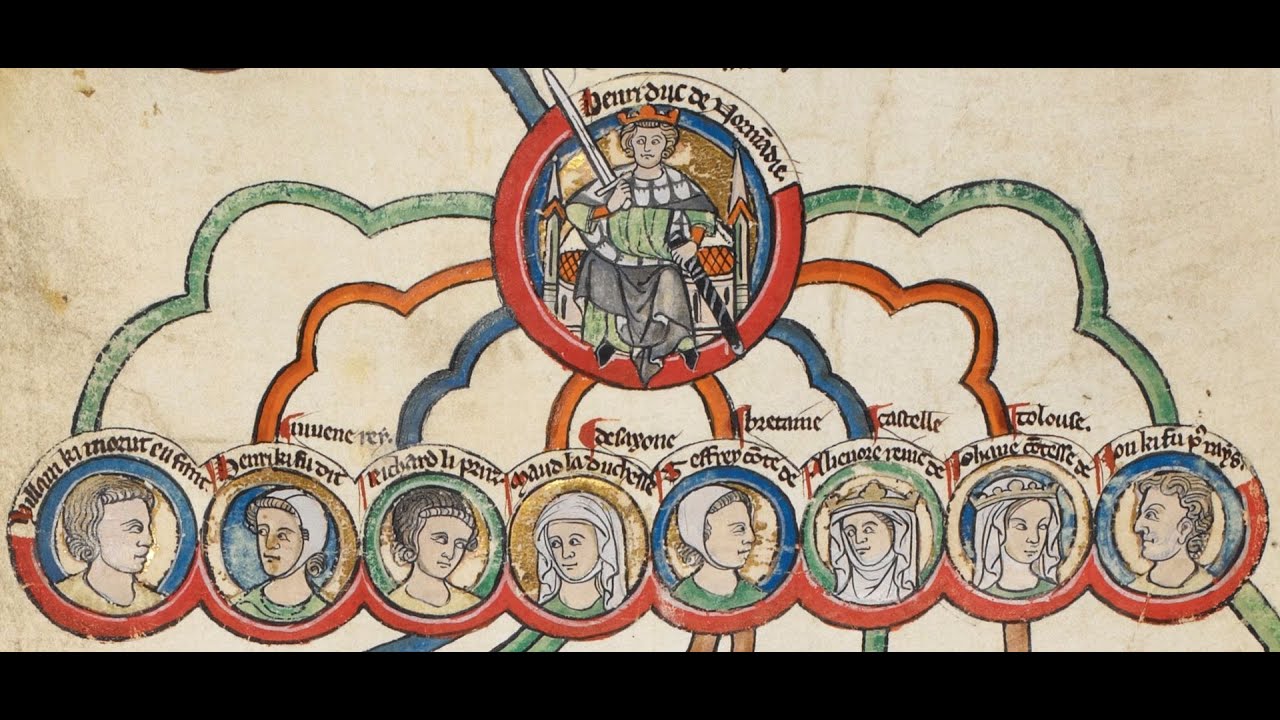 henri duc de Normādie.
Willam ki morut en fant
henri ki fu dit
iuuene rey.
Richard li prim
Maud la duchesse
de saxone
Geffrey cōte de
bretaine
Alienore reine de
castelle
Iohane cōtesse de
tolouse.
Ion ki fu p̄ rays.